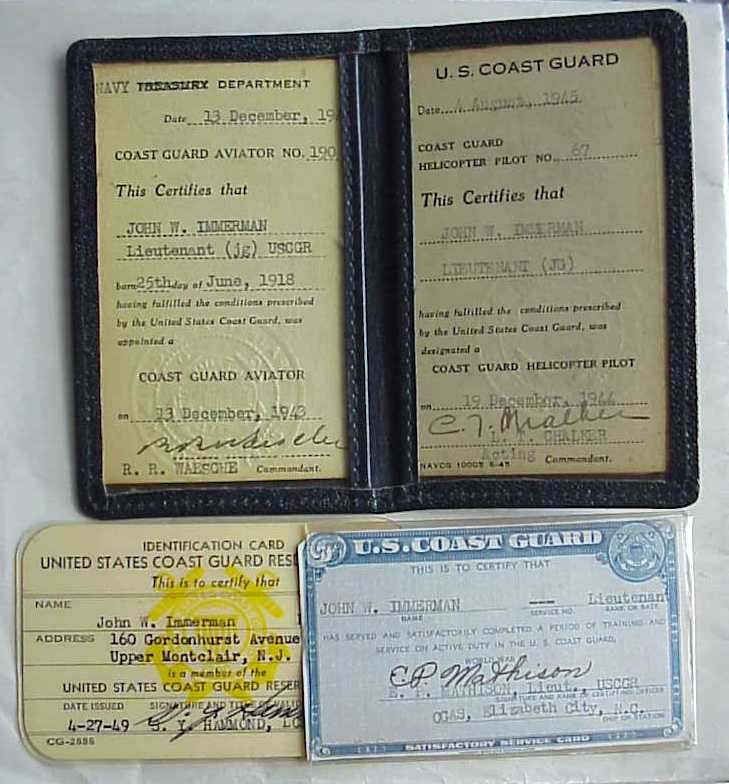 NAVY TREASURY DEPARTMENT
Date 13 December, 19
COAST GUARD AVIATOR NO. 190
This Certifies that
JOHN W. IMMERMAN
Lieutenant (jg) USCGR
born 25th day of June, 1918
having fulfilled the conditions prescribed
by the United States Coast Guard, was
appointed a
COAST GUARD AVIATOR
on 13 December, 1943
R. R. WAESCHE Commandant.
U. S. COAST GUARD
Date 4 August, 1945
COAST GUARD
HELICOPTER PILOT NO. 67
This Certifies that
JOHN W. IMMERMAN
LIEUTENANT (JG)
having fulfilled the conditions prescribed
by the United States Coast Guard, was
designated a
COAST GUARD HELICOPTER PILOT
on 19 December, 1944
L. T. CHALKER
Acting Commandant.
NAVCG
IDENTIFICATION CARD
UNITED STATES COAST GUARD RESE
This is to certify that
NAME
John W. Immerman
ADDRESS 160 Gordonhurst Avenue
Upper Montclair, N.J.
is a member of the
UNITED STATES COAST GUARD RESER
DATE ISSUED SIGNATURE AND
4-27-49 HAMMOND,
U.S. COAST GUARD
THIS IS TO CERTIFY THAT
JOHN W. IMMERMAN -- Lieutenan
NAME SERVICE NO. RANK OR RATE
HAS SERVED AND SATISFACTORILY COMPLETED A PERIOD OF TRAINING AND
SERVICE ON ACTIVE DUTY IN THE U. S. COAST GUARD,
WORLD WAR
E P Mathison
E. P. MATHISON, Lieut., USCGR
CGAS, Elizabeth City, N.C.
SHIP OR STATION
SATISFACTORY SERVICE CARD